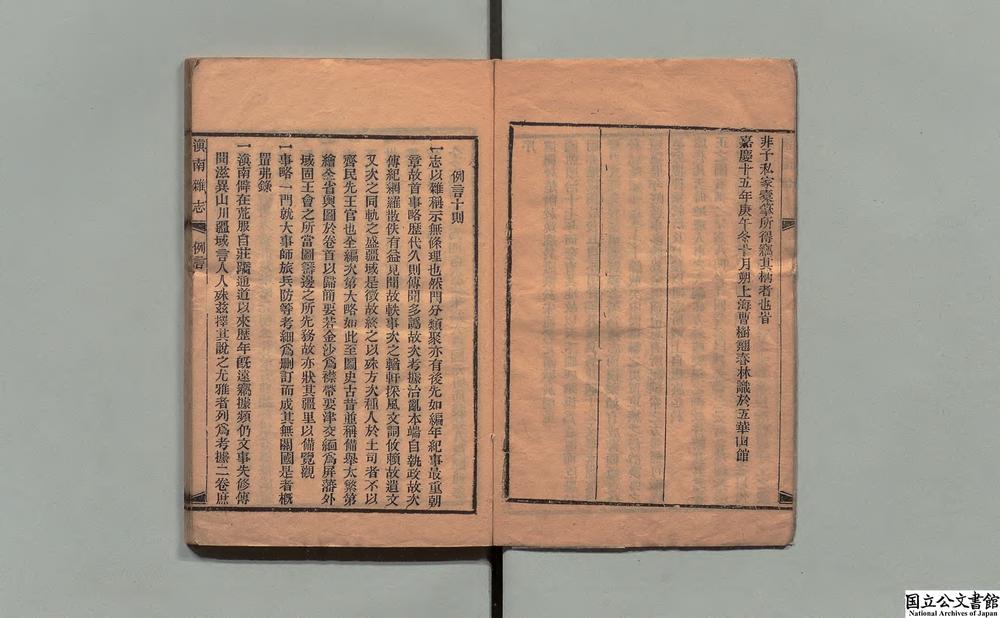 非予私家橐筆所得竊其柄者也旹
嘉慶十五年庚午冬十月朔上海曹樹翹春林識於五華山館
例言十則
一志以雜稱示無條理也然門分類聚亦有後先如編年紀事最重朝
章故首事略歷代久則傳聞多譌故次考據治亂本端自執政故次
傳紀網羅散佚有益見聞故軼事次之輶軒採風文詞攸賴故遺文
又次之同軌之盛疆域是徵故終之以殊方次種人於土司者不以
齊民先王官也全編次第大略如此至圖史古昔並稱備舉太繁第
繪全省輿圖於卷首以歸簡要若金沙爲襟帶要津交緬爲屏藩外
域固王會之所當圖籌邊之所先務故亦狀其疆里以備覽觀
一事略一門就大事師旅兵防等考細爲刪訂而成其無關國是者槪
置弗錄
一滇南僻在荒服自莊蹻通道以來歷年旣遠竊據頻仍文事失修傳
聞滋異山川疆域言人人殊玆擇其說之尤雅者列爲考據二卷庶
滇南雜志
例言
国立公文書館
National Archives of Japan